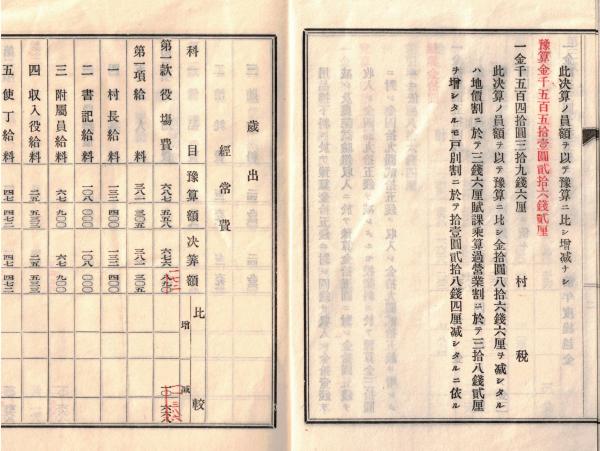 此決算ノ員額ヲ以テ豫算ニ比シ增減ナシ
豫算金千五百五拾壹圓貳拾六錢貳厘
一金千五百四拾圓三拾九錢六厘 村稅
此決算ノ員額ヲ以テ豫算ニ比シ金拾圓八拾六錢六厘ヲ減シタル
ハ地價割ニ於テ三錢六厘賦課乘算過營業割ニ於テ三拾八錢貳厘
ヲ增シタルモ戶別割ニ於テ拾壹圓貳拾八錢四厘減シタルニ依ル
歲出
經常費
科目 豫算額 決算額 比較 增 減
第一款役場費 六七六 五五八
第一項給料 三八一 三〇五 三八一 三〇五
一村長給料 一三二 四〇〇 一三二 四〇〇
二書記給料 一〇八 〇〇〇 一〇八 〇〇〇
三附屬員給料 六七 九〇〇 六七 九〇〇
四收入役給料 二五 五三三 二五 五三三
五使丁給料 四七 四七二 四七 四七二